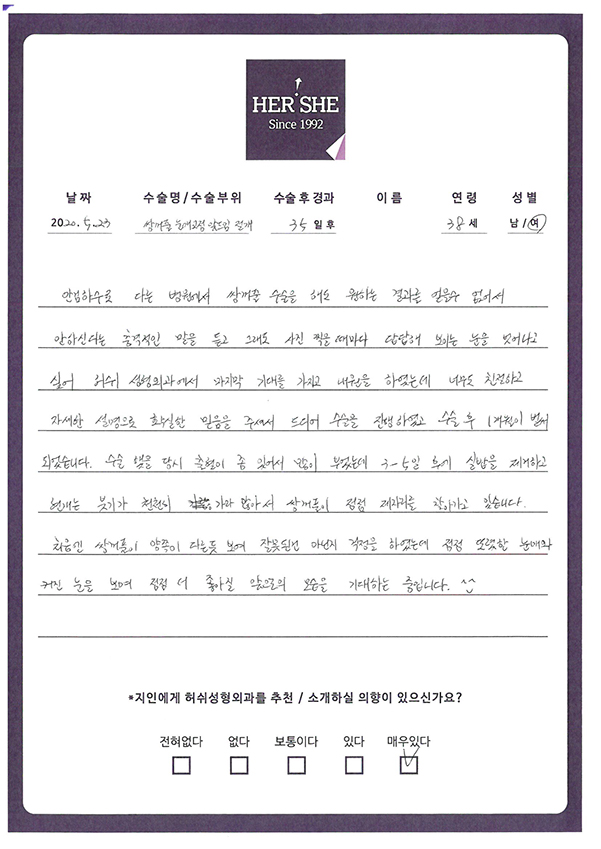 HER SHE
Since 1992
날짜 수술명/수술부위 수술후경과 이름 연령 성별
2020.5.23 쌍꺼풀 눈매교정 앞트임 절개 35일후 38세 남/여
안검하수로 다른 병원에서 쌍꺼풀 수술을 해도 원하는 결과를 얻을수 없어서
안하신다는 충격적인 말을 듣고 그래도 사진 찍을때마다 답답해 보이는 눈을 벗어나고
싶어 허쉬 성형외과에서 마지막 기대를 가지고 내원을 하였는데 너무도 친절하고
자세한 설명으로 확실한 믿음을 주셔서 드디어 수술을 진행하였고 수술 후 1개월이 벌써
되었습니다. 수술 했을 당시 출혈이 좀 있어서 많이 부었는데 3-5일 후에 실밥을 제거하고
현재는 붓기가 천천히 가라앉아서 쌍꺼풀이 점점 제자리를 찾아가고 있습니다.
처음엔 쌍꺼풀이 양쪽이 다른듯 보여 잘못된건 아닌지 걱정을 하였는데 점점 또렷한 눈매와
커진 눈을 보며 점점 더 좋아질 앞으로의 모습을 기대하는 중입니다. ^^
*지인에게 허쉬성형외과를 추천 / 소개하실 의향이 있으신가요?
전혀없다 없다 보통이다 있다 매우있다